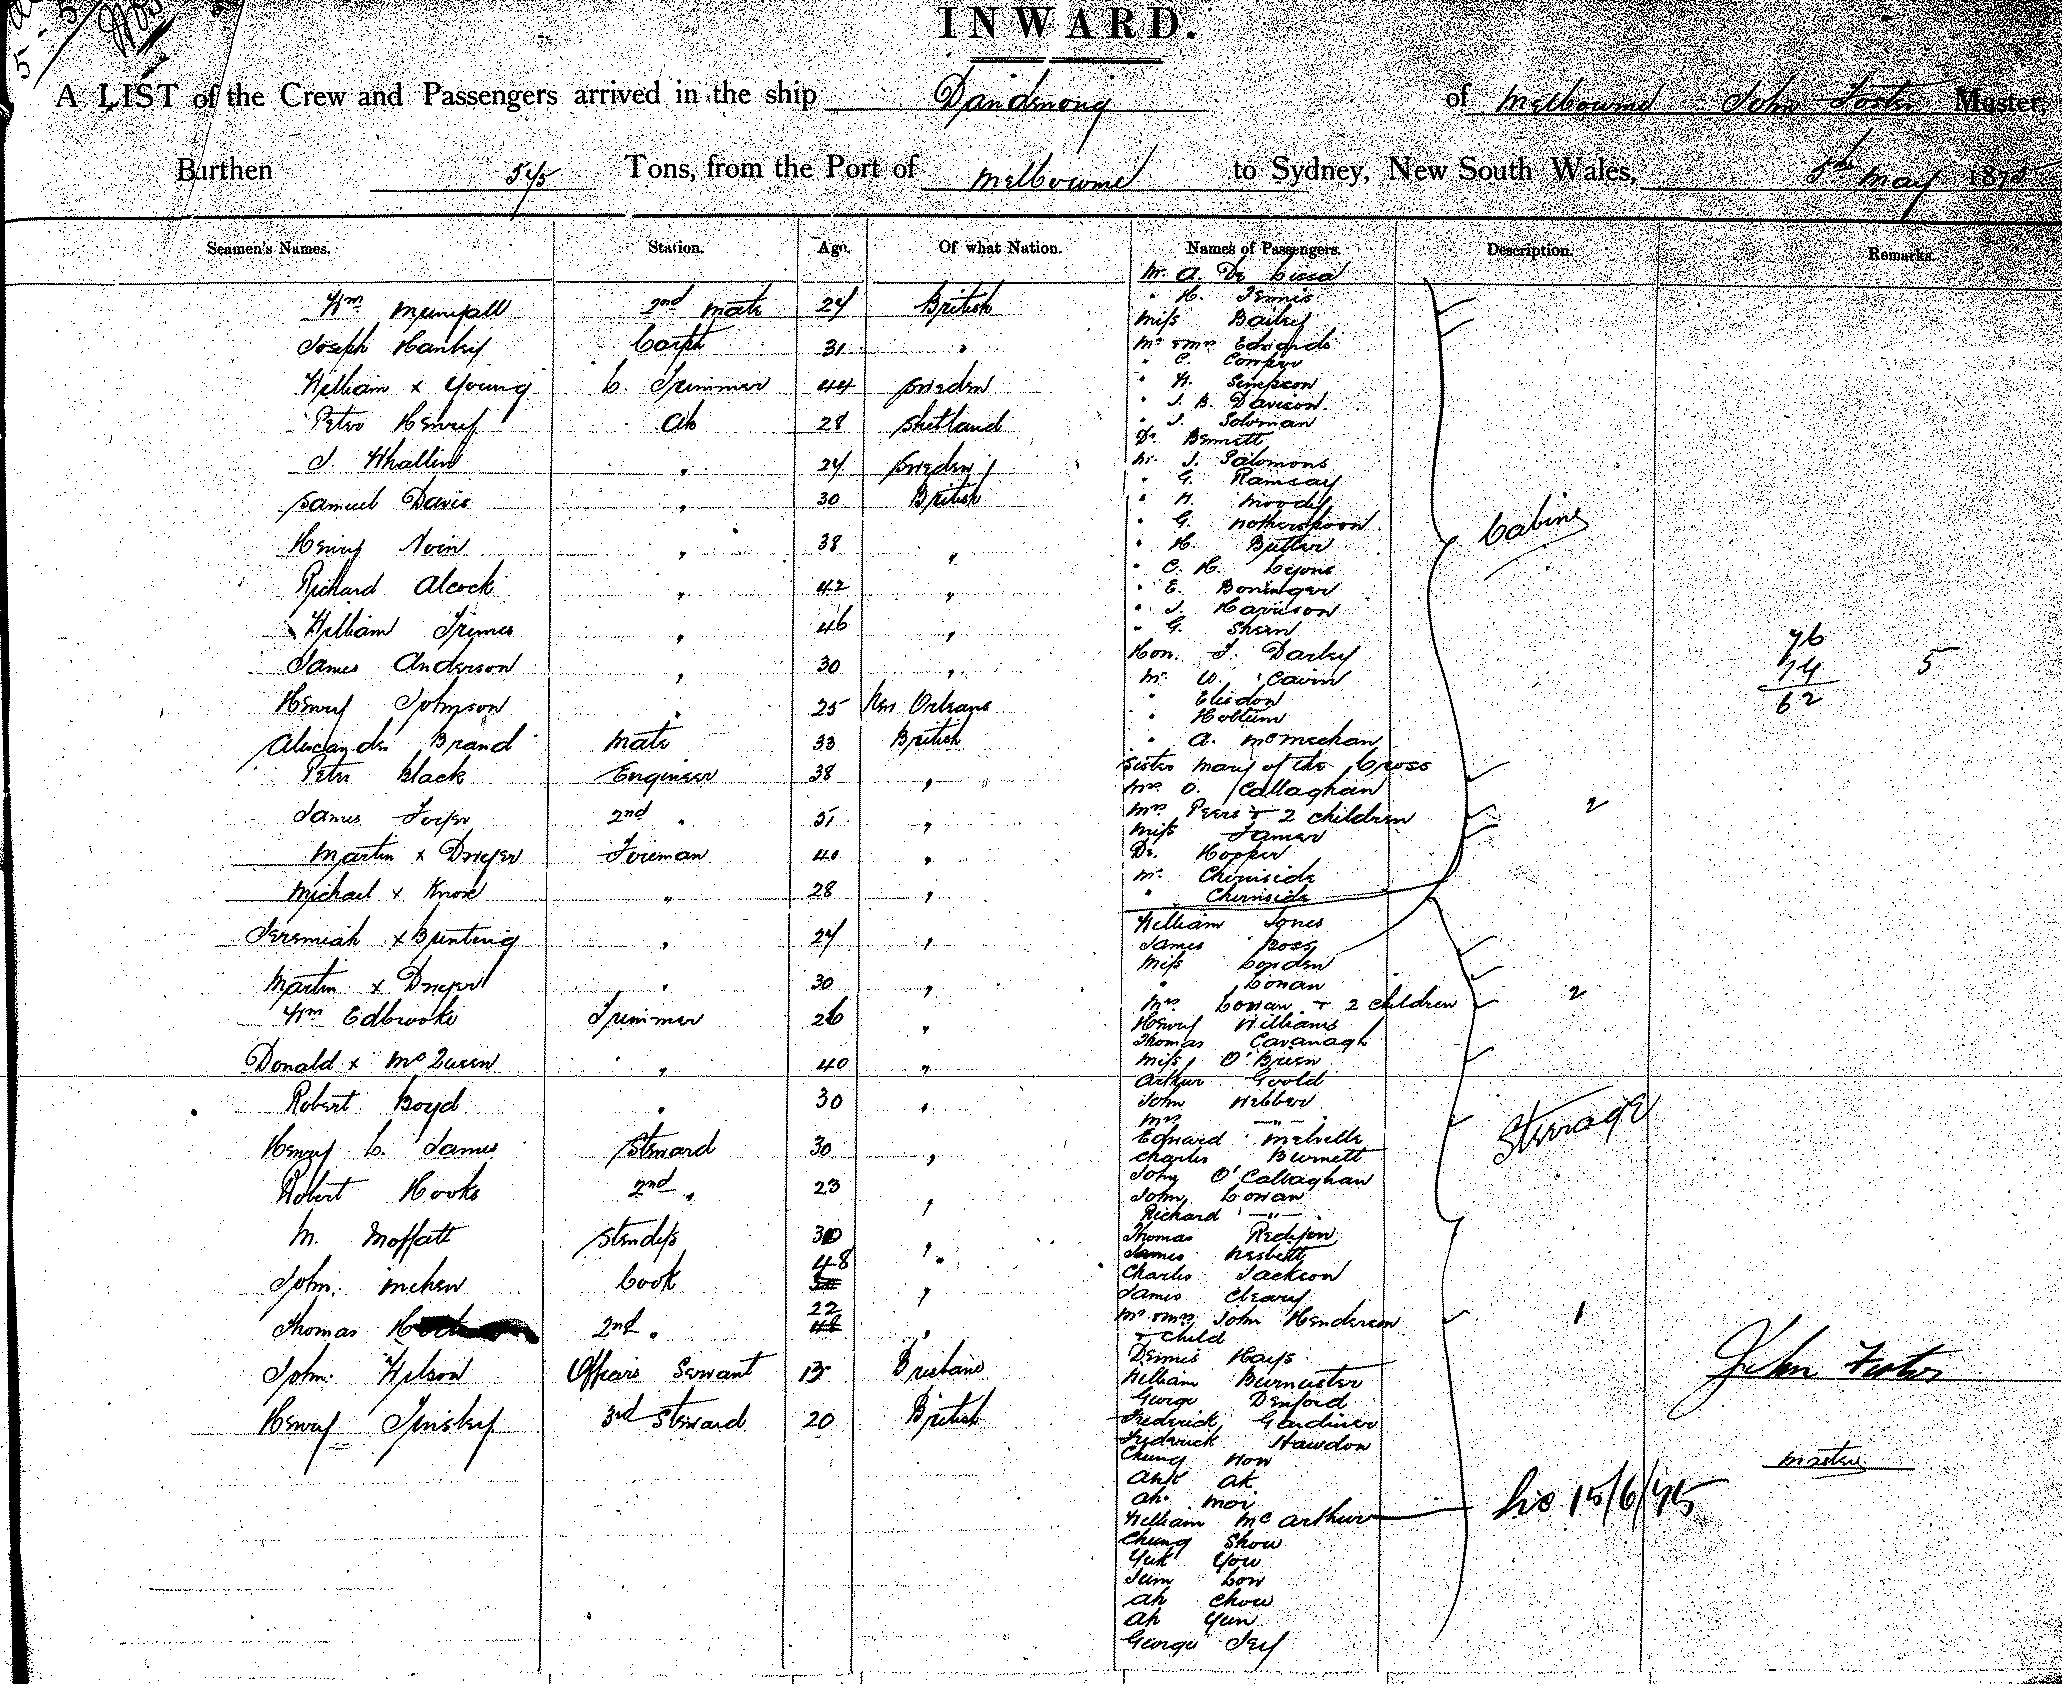 INWARD.
A LIST of the Crew and Passengers arrived in the ship Dandenong of Melbourne John Foster Master
Burthen 545 Tons, from the Port of Melbourne to Sydney, New South Wales, 5th May 1875
Seamen's Names. Station. Age. Of what Nation. Names of Passengers. Description. Remarks.
Mr. A. De Lissa
" H. Tennis
Miss Bailey
Mr & Mrs Edwards
" C. Cowper
" W. Simpson
" J. B. Davison
" J. Soloman
Dr. Bennett
Mr. J. Salomons
" G. Ramsay
" H. Moody
" G. Wotherspoon
" H. Butler
" C. H. Lyons
" E. Boninger
" J. Harrison
" G. Shern
Hon. J. Darley
Mr. W. Cavin
" Elsdon
" Holtum
" A. McMeckan
Sister Mary of the Cross
Mrs O. Callaghan
Mrs Peers & 2 children 2
Miss Jamer
Dr. Hopper
Mr. Chirnside
" Chirnside
Cabins
William Jones
James Ross
Miss Cowden
" Conan
Mrs Conan & 2 children 2
Henry Williams
Thomas Cavanagh
Miss O'Brien
Arthur Goold
John Webber
Mrs "
Edward Melville
Charles Burnett
John O'Callaghan
John Conan
Richard "
Thomas Redfern
James Nesbitt
Charles Jackson
James Cleary
Mr & Mrs John Henderson 1
& child
Dennis Hays
William Burmester
George Denford
Frederick Gardiner
Frederick Hawdon
Chung How
Ank Ak
Ah Moi
William McArthur
Chung Show
Yuk You
Sum Low
Ah Chow
Ah Yun
George Jey
Steerage
Wm Meinfall 2nd Mate 24 British
Joseph Hankey Carptr 31 "
William x Young L. Trimmer 44 Sweden
Peter Henry AB 28 Shetland
J Whallin " 24 Sweden
Samuel Davis " 30 British
Henry Noin " 38 "
Richard Alcock " 42 "
William Grimes " 46 "
James Anderson " 30 "
Henry Johnson " 25 New Orleans
Alexander Brand Mate 33 British
Peter Black Engineer 38 "
James Foyer 2nd " 31 "
Martin x Dwyer Foreman 40 "
Michael x Knox " 28 "
Jeremiah x Bunting " 24 "
Martin x Dwyer " 30 "
Wm Edbrooke Trimmer 26 "
Donald x McQueen " 40 "
Robert Boyd " 30 "
Henry C. James Steward 30 "
Robert Hooke 2nd " 23 "
M. Moffatt Stewdss 30 "
John Mehew Cook 48 "
Thomas 2nd " 22 "
John Wilson Officers Servant 15 Brisbane
Henry Tinsley 3rd Steward 20 British
76
14
62
5
John Foster
Master
15/6/75